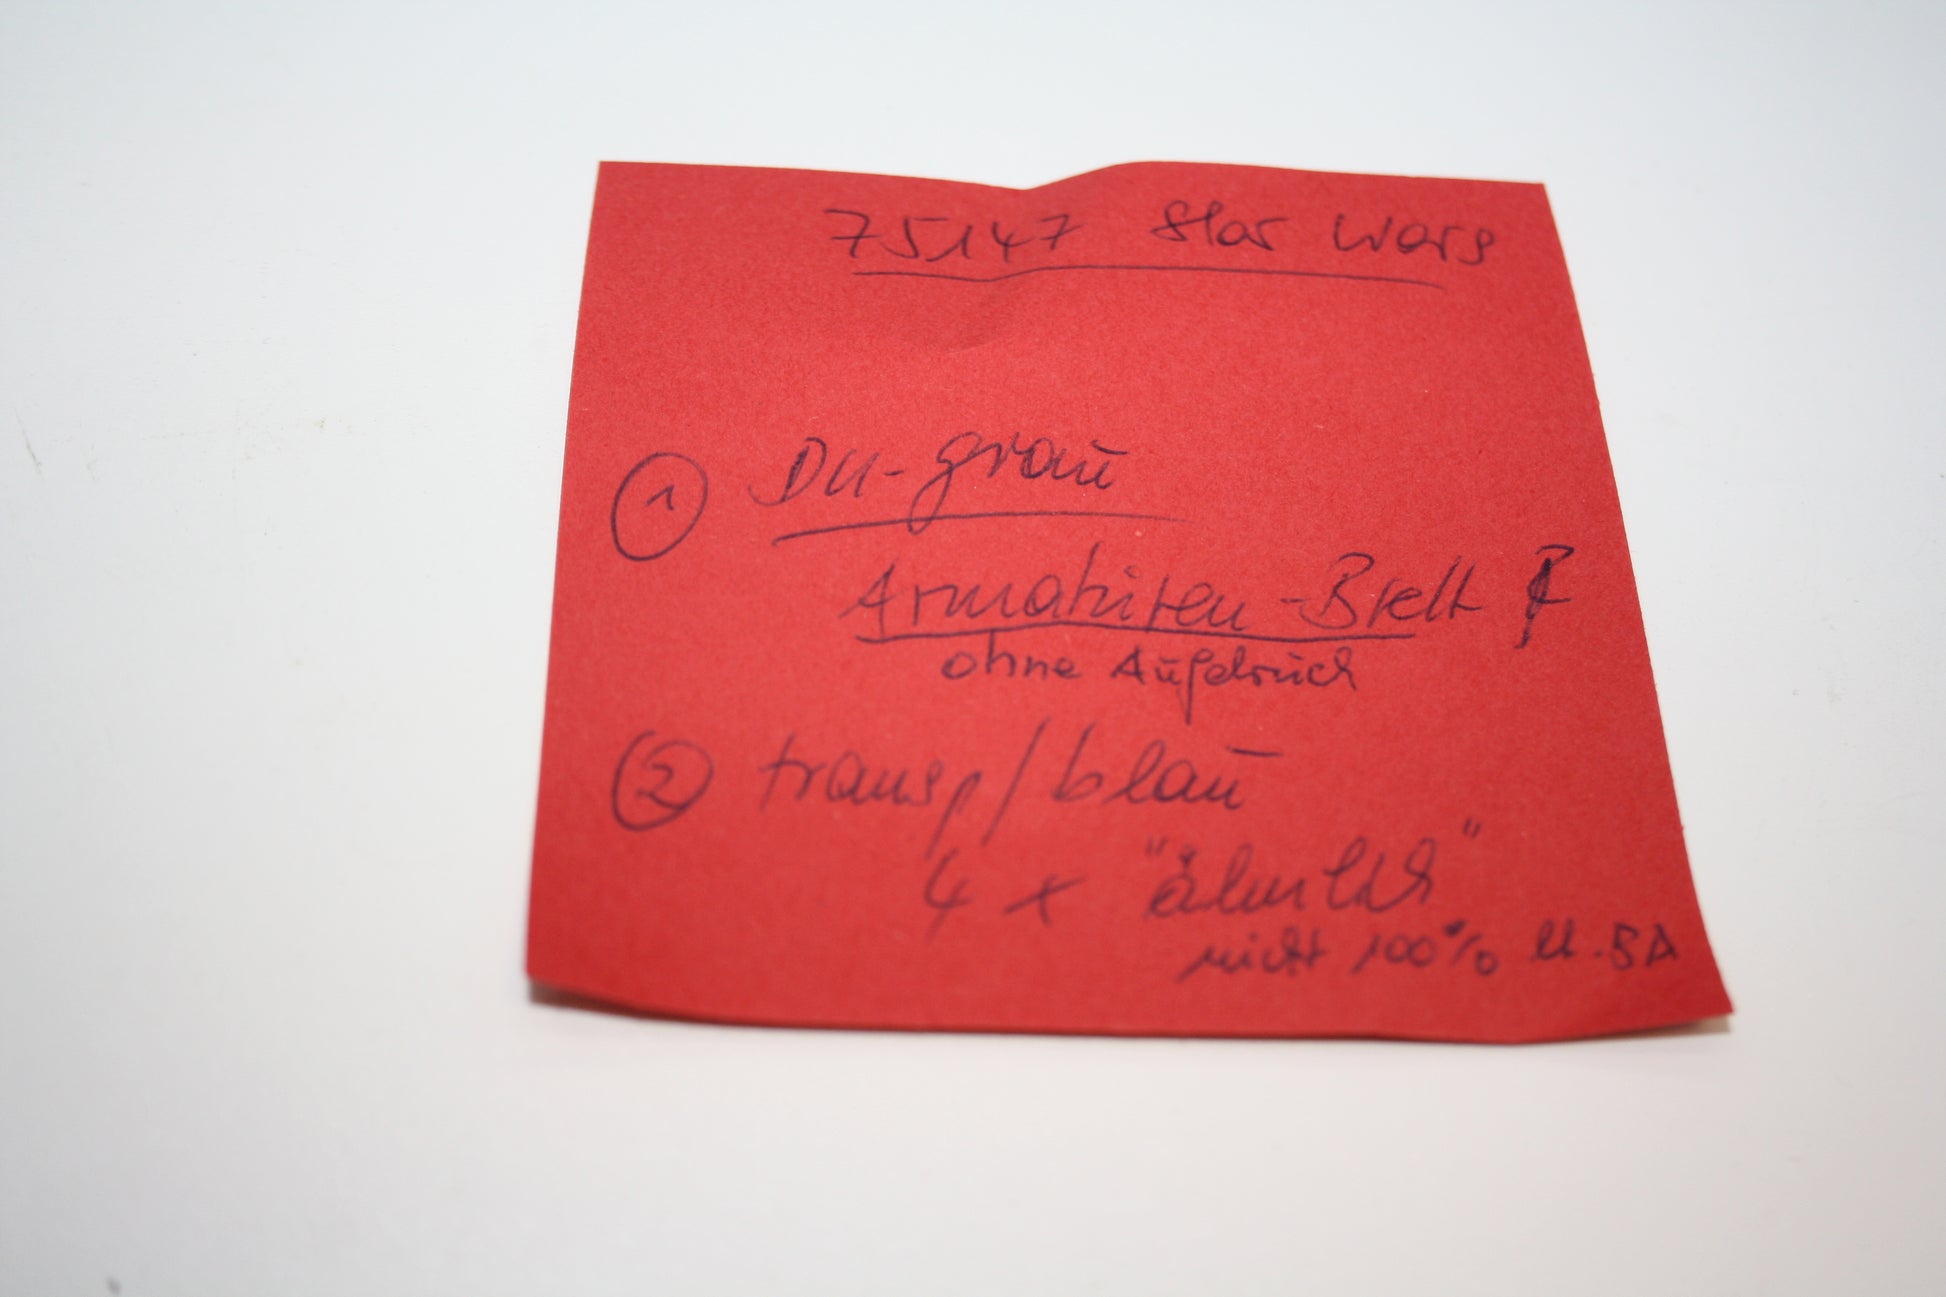 75147 Star Wars
① DU-grau
Armaturen-Brett
ohne Aufdruck
② transp/blau
4 x "ähnlich"
nicht 100%